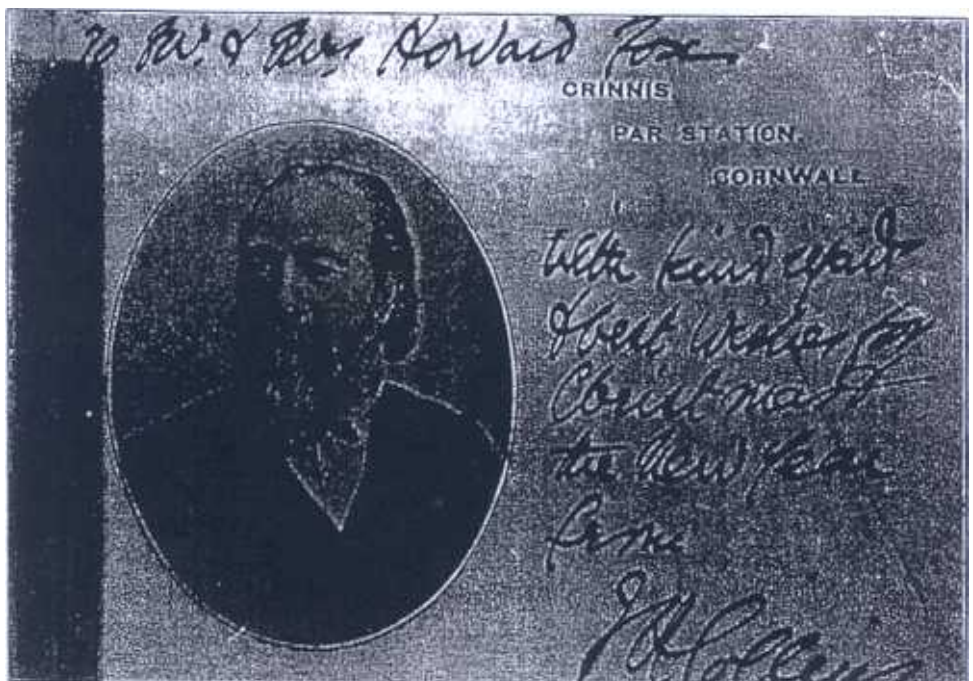 To Mr. & Mrs Howard Fox
CRINNIS,
PAR STATION,
CORNWALL
With kind regards
& best Wishes for
Christmas &
the New Year
from
J H Collins